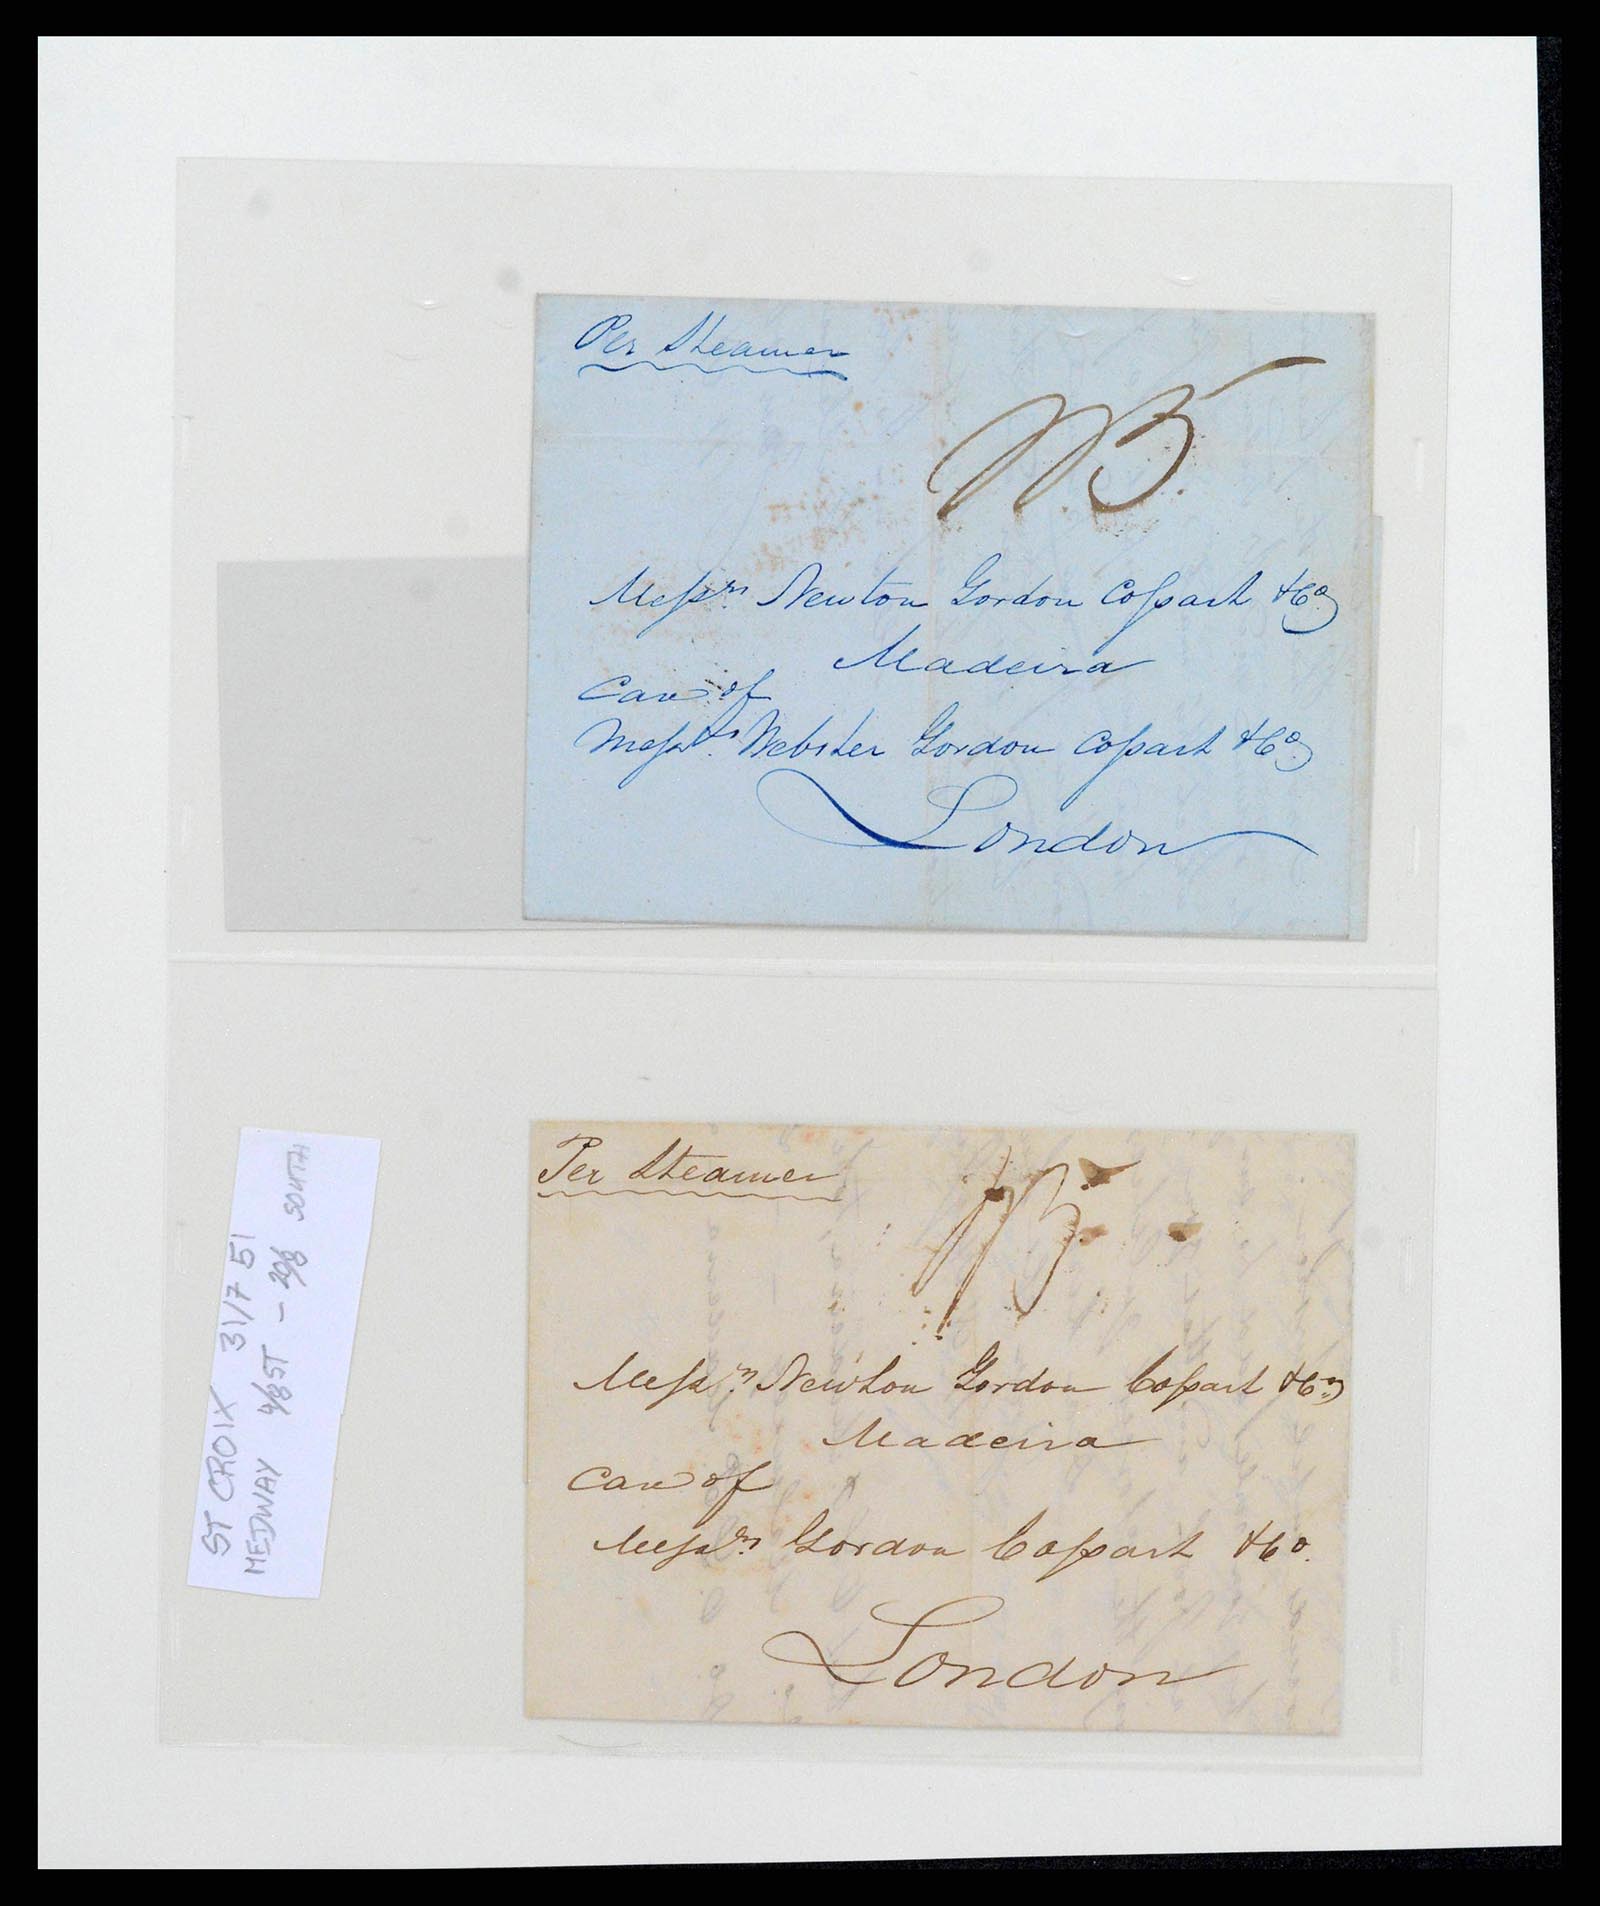 Per Steamer
1/3
Messrs Newton Gordon Cossart & Co
Madeira
Care of
Messrs Webster Gordon Cossart & Co
London
ST CROIX 31/7 51
MEDWAY 4/8 ST - 29/8 SOUTH
Per Steamer
1/3
Messrs Newton Gordon Cossart & Co
Madeira
Care of
Messrs Gordon Cossart & Co.
London